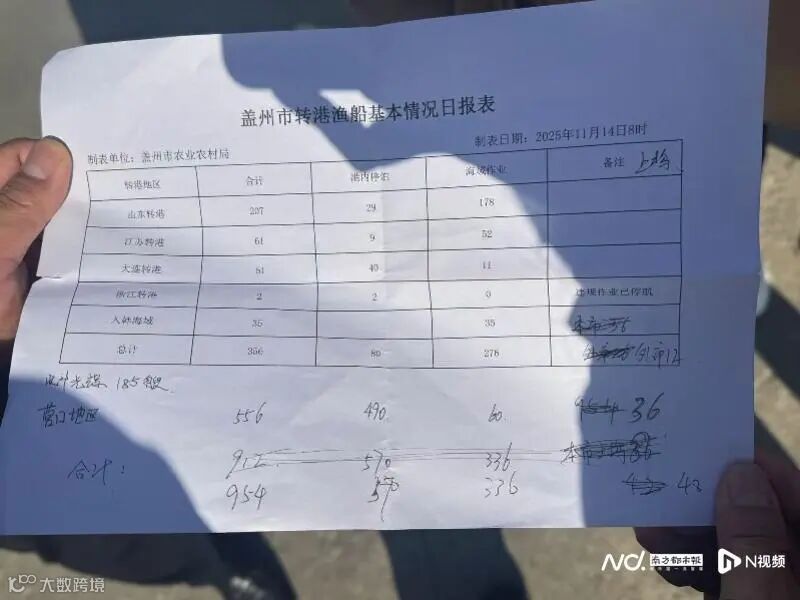 盖州市转港渔船基本情况日报表
制表单位：盖州市农业农村局 制表日期：2025年11月14日8时
转港地区 合计 港内停泊 海域作业 备注
山东转港 207 29 178
江苏转港 61 9 52
大连转港 51 40 11
浙江转港 2 2 0 违规作业已停航
入韩海域 35 35
总计 356 80 276 外市12
185艘
营口地区 556 490 60 36
合计： 912 570 336
954 570 336 42
南方都市报
N视频
大数跨境